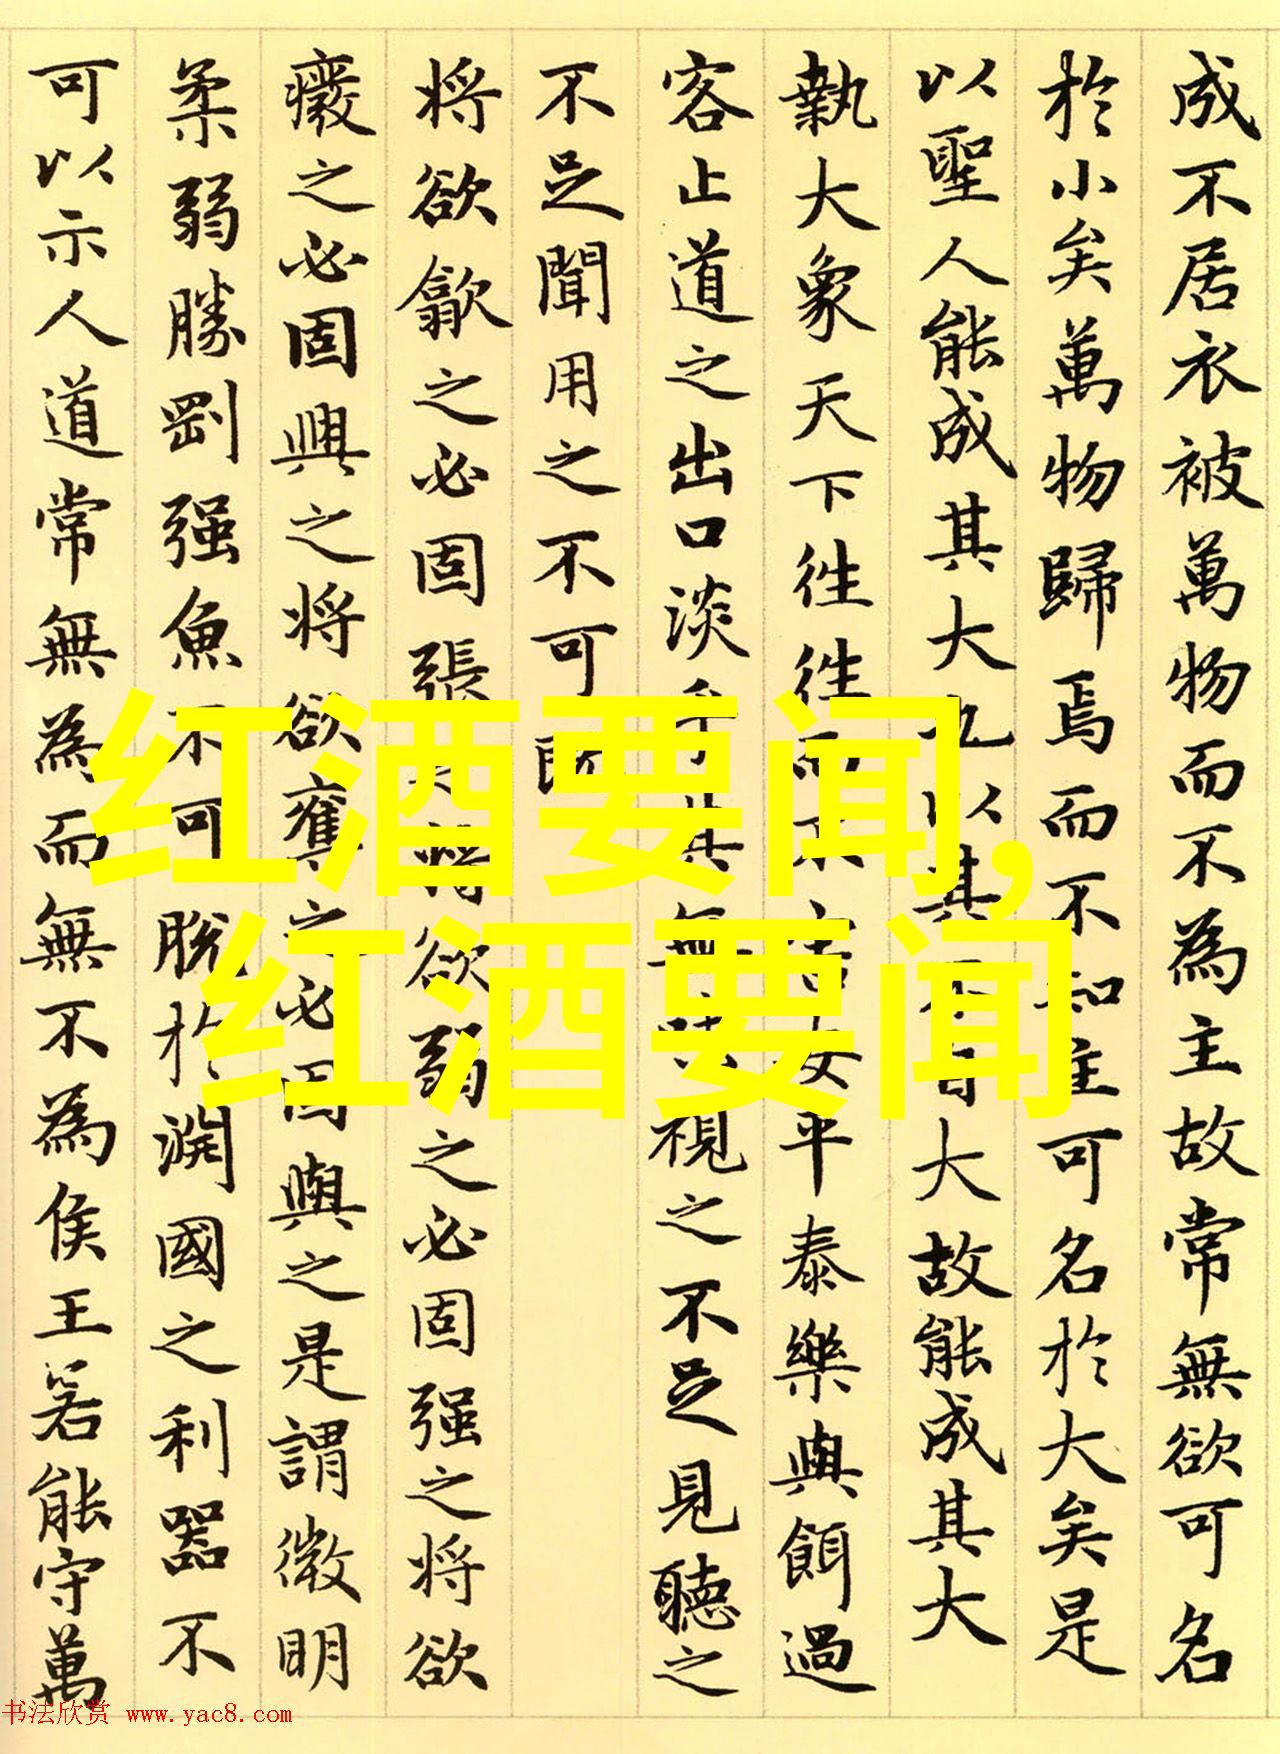 成不居衣被萬物而不為主故常無欲可名
於小矣萬物歸焉而不知主可名於大矣是
以聖人能成其大也以其不自大故能成其大
執大象天下往往而不害安平泰樂與餌過
客止道之出口淡乎其無味視之不足見聽之
不足聞用之不可既
将欲歙之必固張之将欲弱之必固强之将欲
癈之必固興之将欲奪之必固與之是謂微明
柔弱勝剛强魚不可脫於淵國之利器不
可以示人道常無為而無不為侯王若能守萬
红酒要闻,
红酒要闻
书法欣赏 www.yac8.com